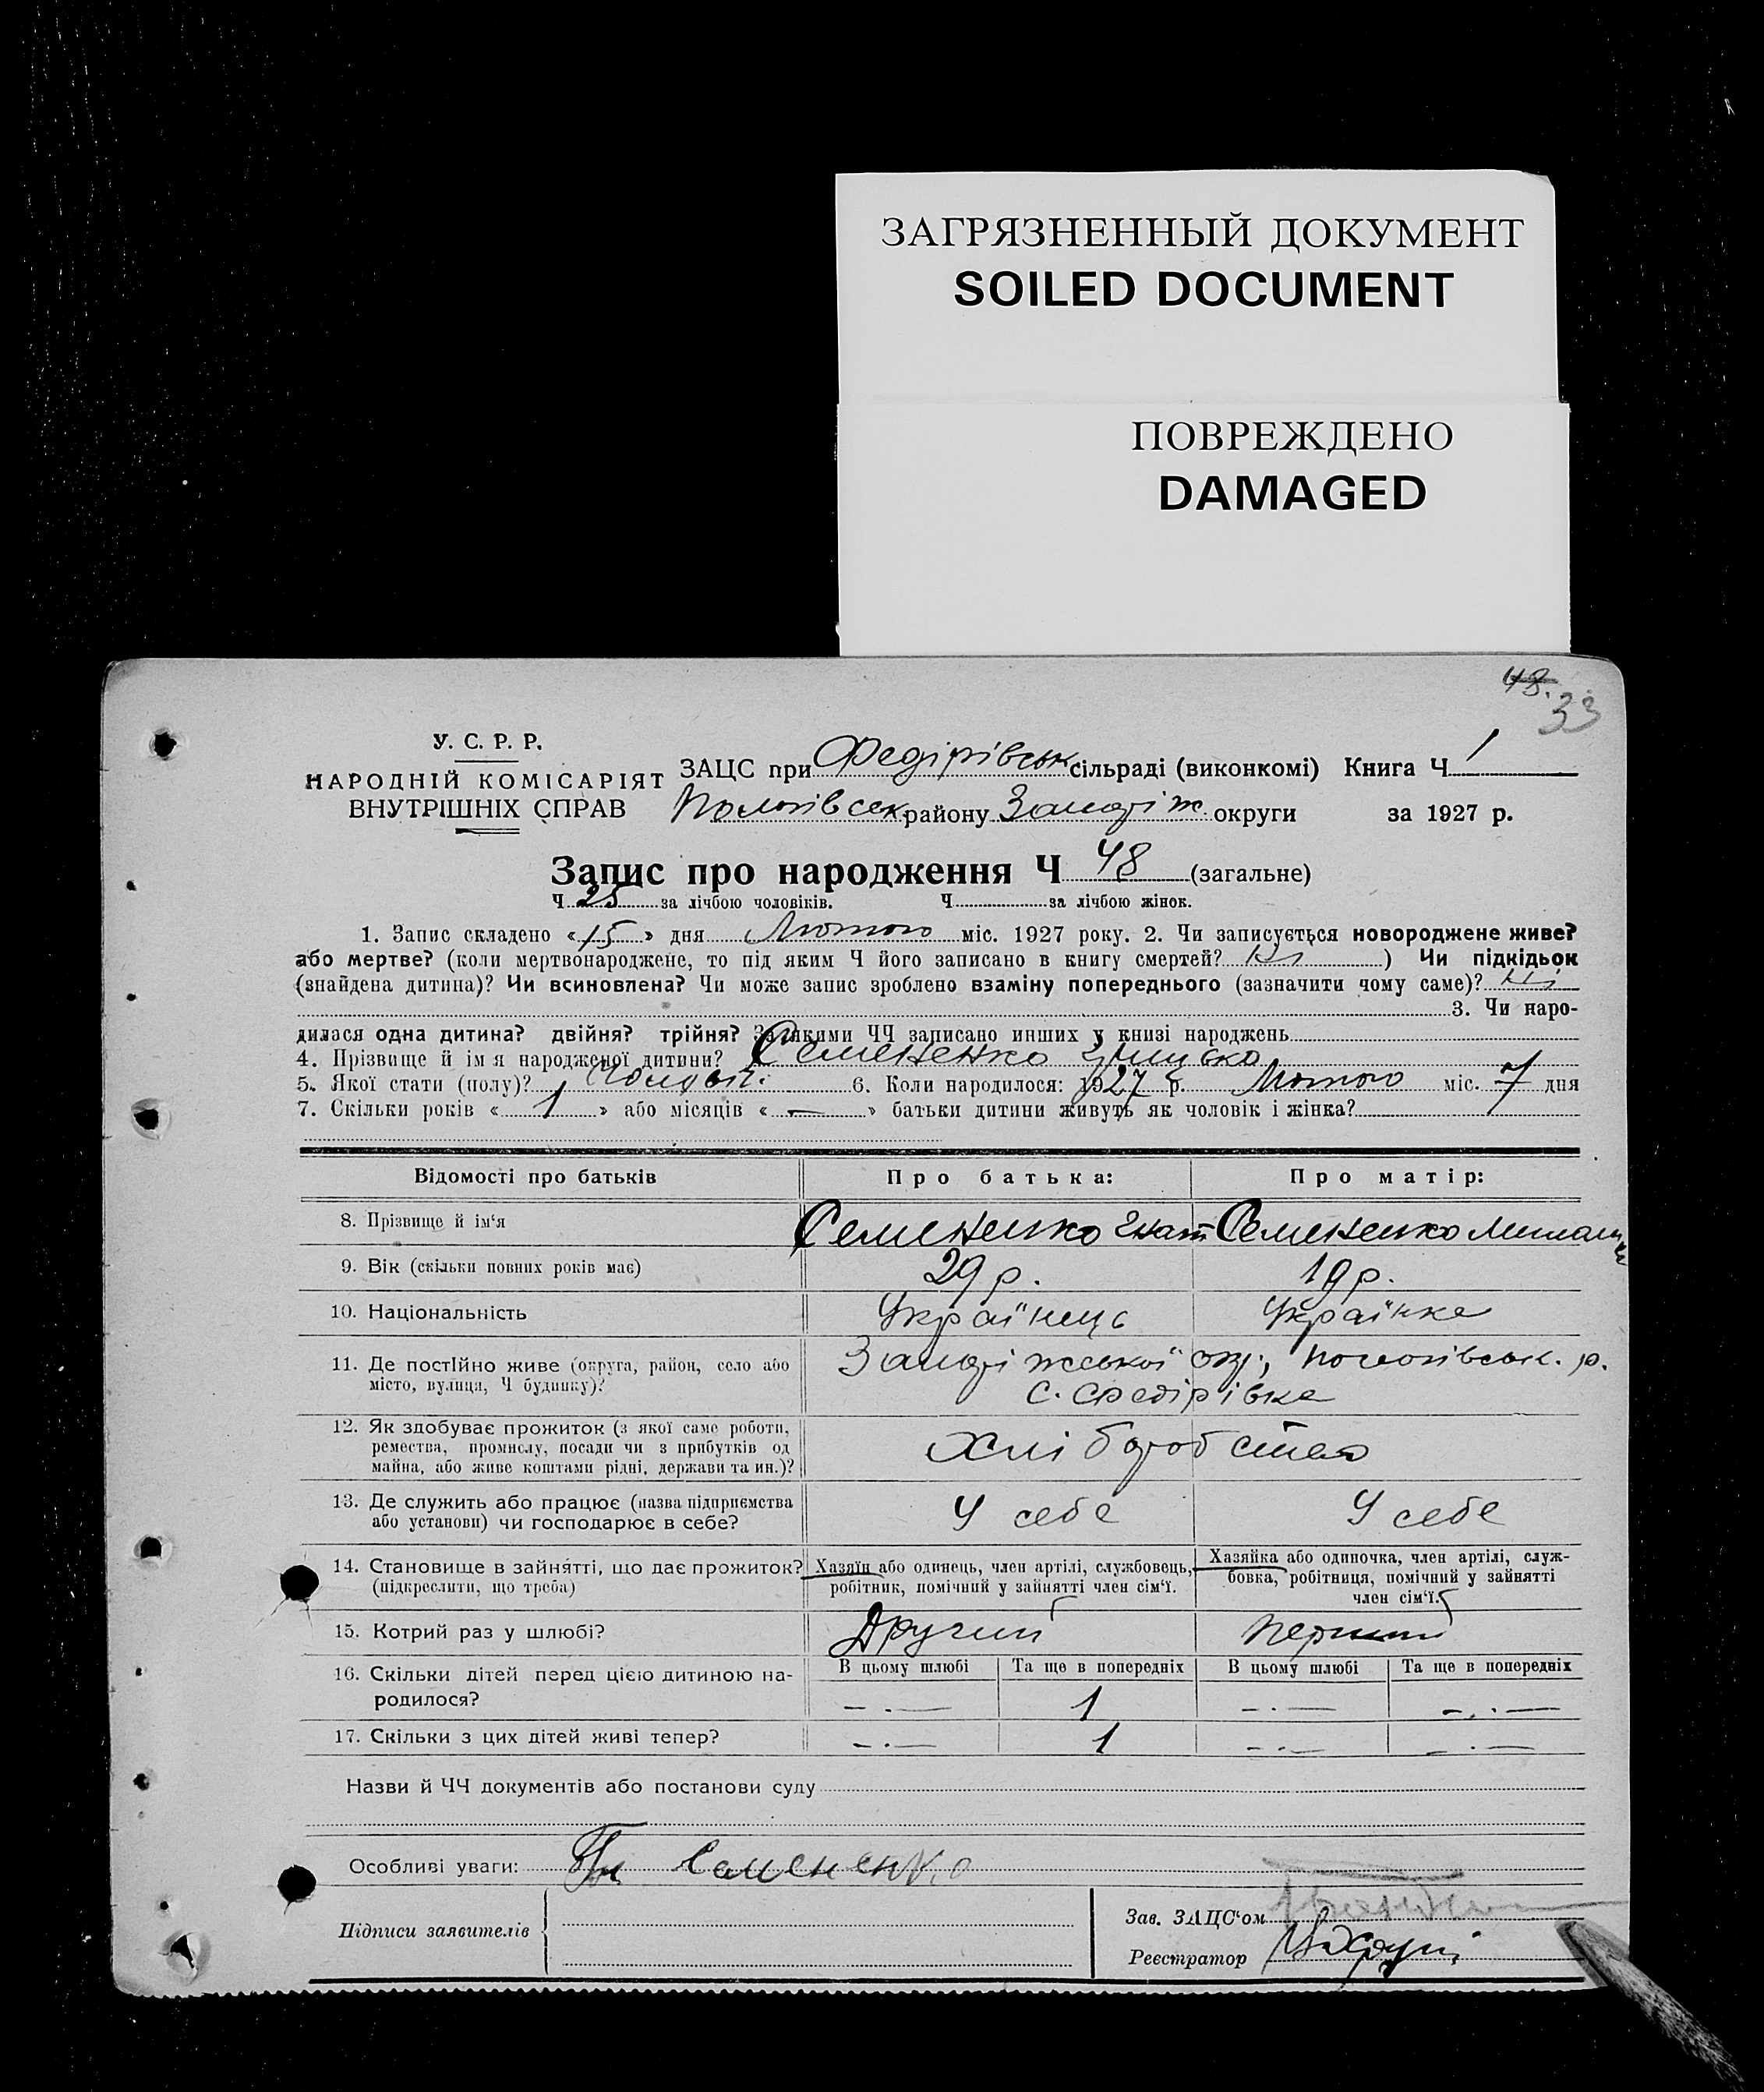 ЗАГРЯЗНЕННЫЙ ДОКУМЕНТ
SOILED DOCUMENT
ПОВРЕЖДЕНО
DAMAGED
48.
33
У. С. Р. Р.
НАРОДНІЙ КОМІСАРІЯТ
ВНУТРІШНІХ СПРАВ
ЗАЦС при Федірівськ сільраді (виконкомі) Книга Ч 1
Пологівськ району Запоріж. округи за 1927 р.
Запис про народження Ч 48 (загальне)
Ч 25 за лічбою чоловіків. Ч за лічбою жінок.
1. Запис складено «15» дня Лютого міс. 1927 року. 2. Чи записується новороджене живе?
або мертве? (коли мертвонароджене, то під яким Ч його записано в книгу смертей? Ні) Чи підкідьок
(знайдена дитина)? Чи всиновлена? Чи може запис зроблено взаміну попереднього (зазначити чому саме)? Ні
3. Чи наро-
дилася одна дитина? двійня? трійня? За якими ЧЧ записано инших у книзі народжень
4. Прізвище й ім я народженої дитини? Семененко Грицько
5. Якої стати (полу)? Чоловіч. 6. Коли народилося: 1927 р. Лютого міс. 7 дня
7. Скільки років «1» або місяців «—» батьки дитини живуть як чоловік і жінка?
Відомості про батьків Про батька: Про матір:
8. Прізвище й ім'я Семененко Гнат Семененко
9. Вік (скільки повних років має) 29 р. 19 р.
10. Національність Українець Українка
11. Де постійно живе (округа, район, село або Запоріжської окр., Пологівськ. р.
місто, вулиця, Ч будинку)? с. Федірівка
12. Як здобуває прожиток (з якої саме роботи,
ремества, промислу, посади чи з прибутків од Хліборобство
майна, або живе коштами рідні, держави та ин.)?
13. Де служить або працює (назва підприємства У себе У себе
або установи) чи господарює в себе?
14. Становище в зайнятті, що дає прожиток? Хазяїн або одинець, член артілі, службовець, Хазяйка або одиночка, член артілі, служ-
(підкреслити, що треба) робітник, помічний у зайнятті член сім'ї. бовка, робітниця, помічний у зайнятті
член сім'ї.
15. Котрий раз у шлюбі? Другий Перший
16. Скільки дітей перед цією дитиною на- В цьому шлюбі Та ще в попередніх В цьому шлюбі Та ще в попередніх
родилося? —.— 1 —.— —.—
17. Скільки з цих дітей живі тепер? —.— 1 —.— —.—
Назви й ЧЧ документів або постанови суду
Особливі уваги: Гн Семененко
Підписи заявителів
Зав. ЗАЦС'ом
Реєстратор